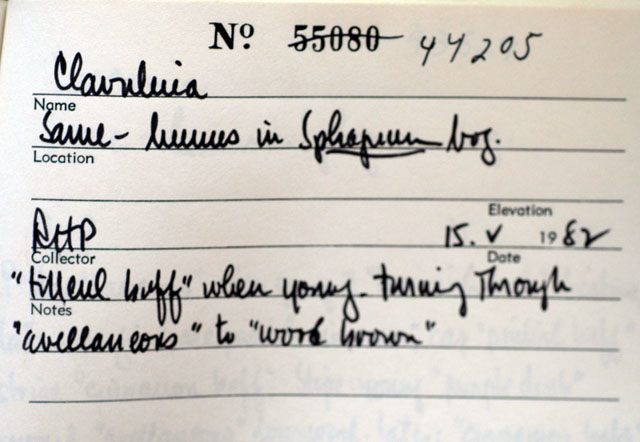 Nº 55080 44205
Clavulinia
Name
Same - humus in Sphagnum bog.
Location
Elevation
RHP 15. V 1982
Collector Date
"tilleul buff" when young. turning through
Notes
"avellaneous" to "wood brown"